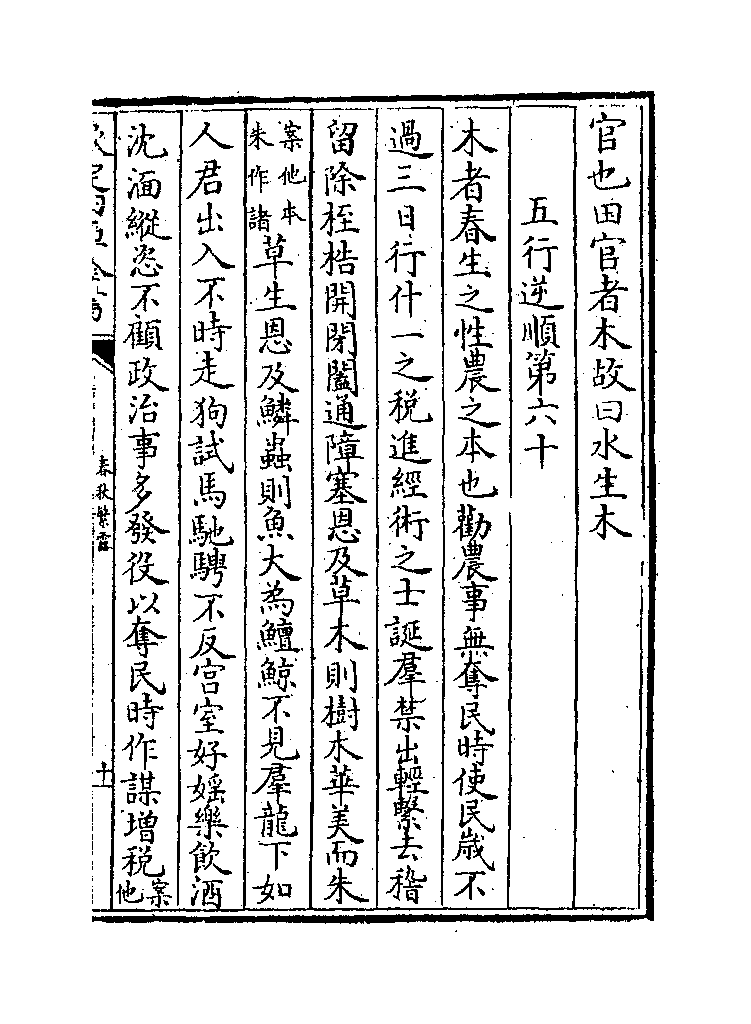 官也田官者木故曰水生木
五行逆順第六十
木者春生之性農之本也勸農事無奪民時使民歲不
過三日行什一之稅進經術之士誕羣禁出輕繫去稽
留除桎梏開閉闔通障塞恩及草木則樹木華美而朱
案他本朱作諸草生恩及鱗蟲則魚大為鱣鯨不見羣龍下如
人君出入不時走狗試馬馳騁不反宮室好婬樂飲酒
沈湎縱恣不顧政治事多發役以奪民時作謀增稅案他
欽定四庫全書
春秋繁露